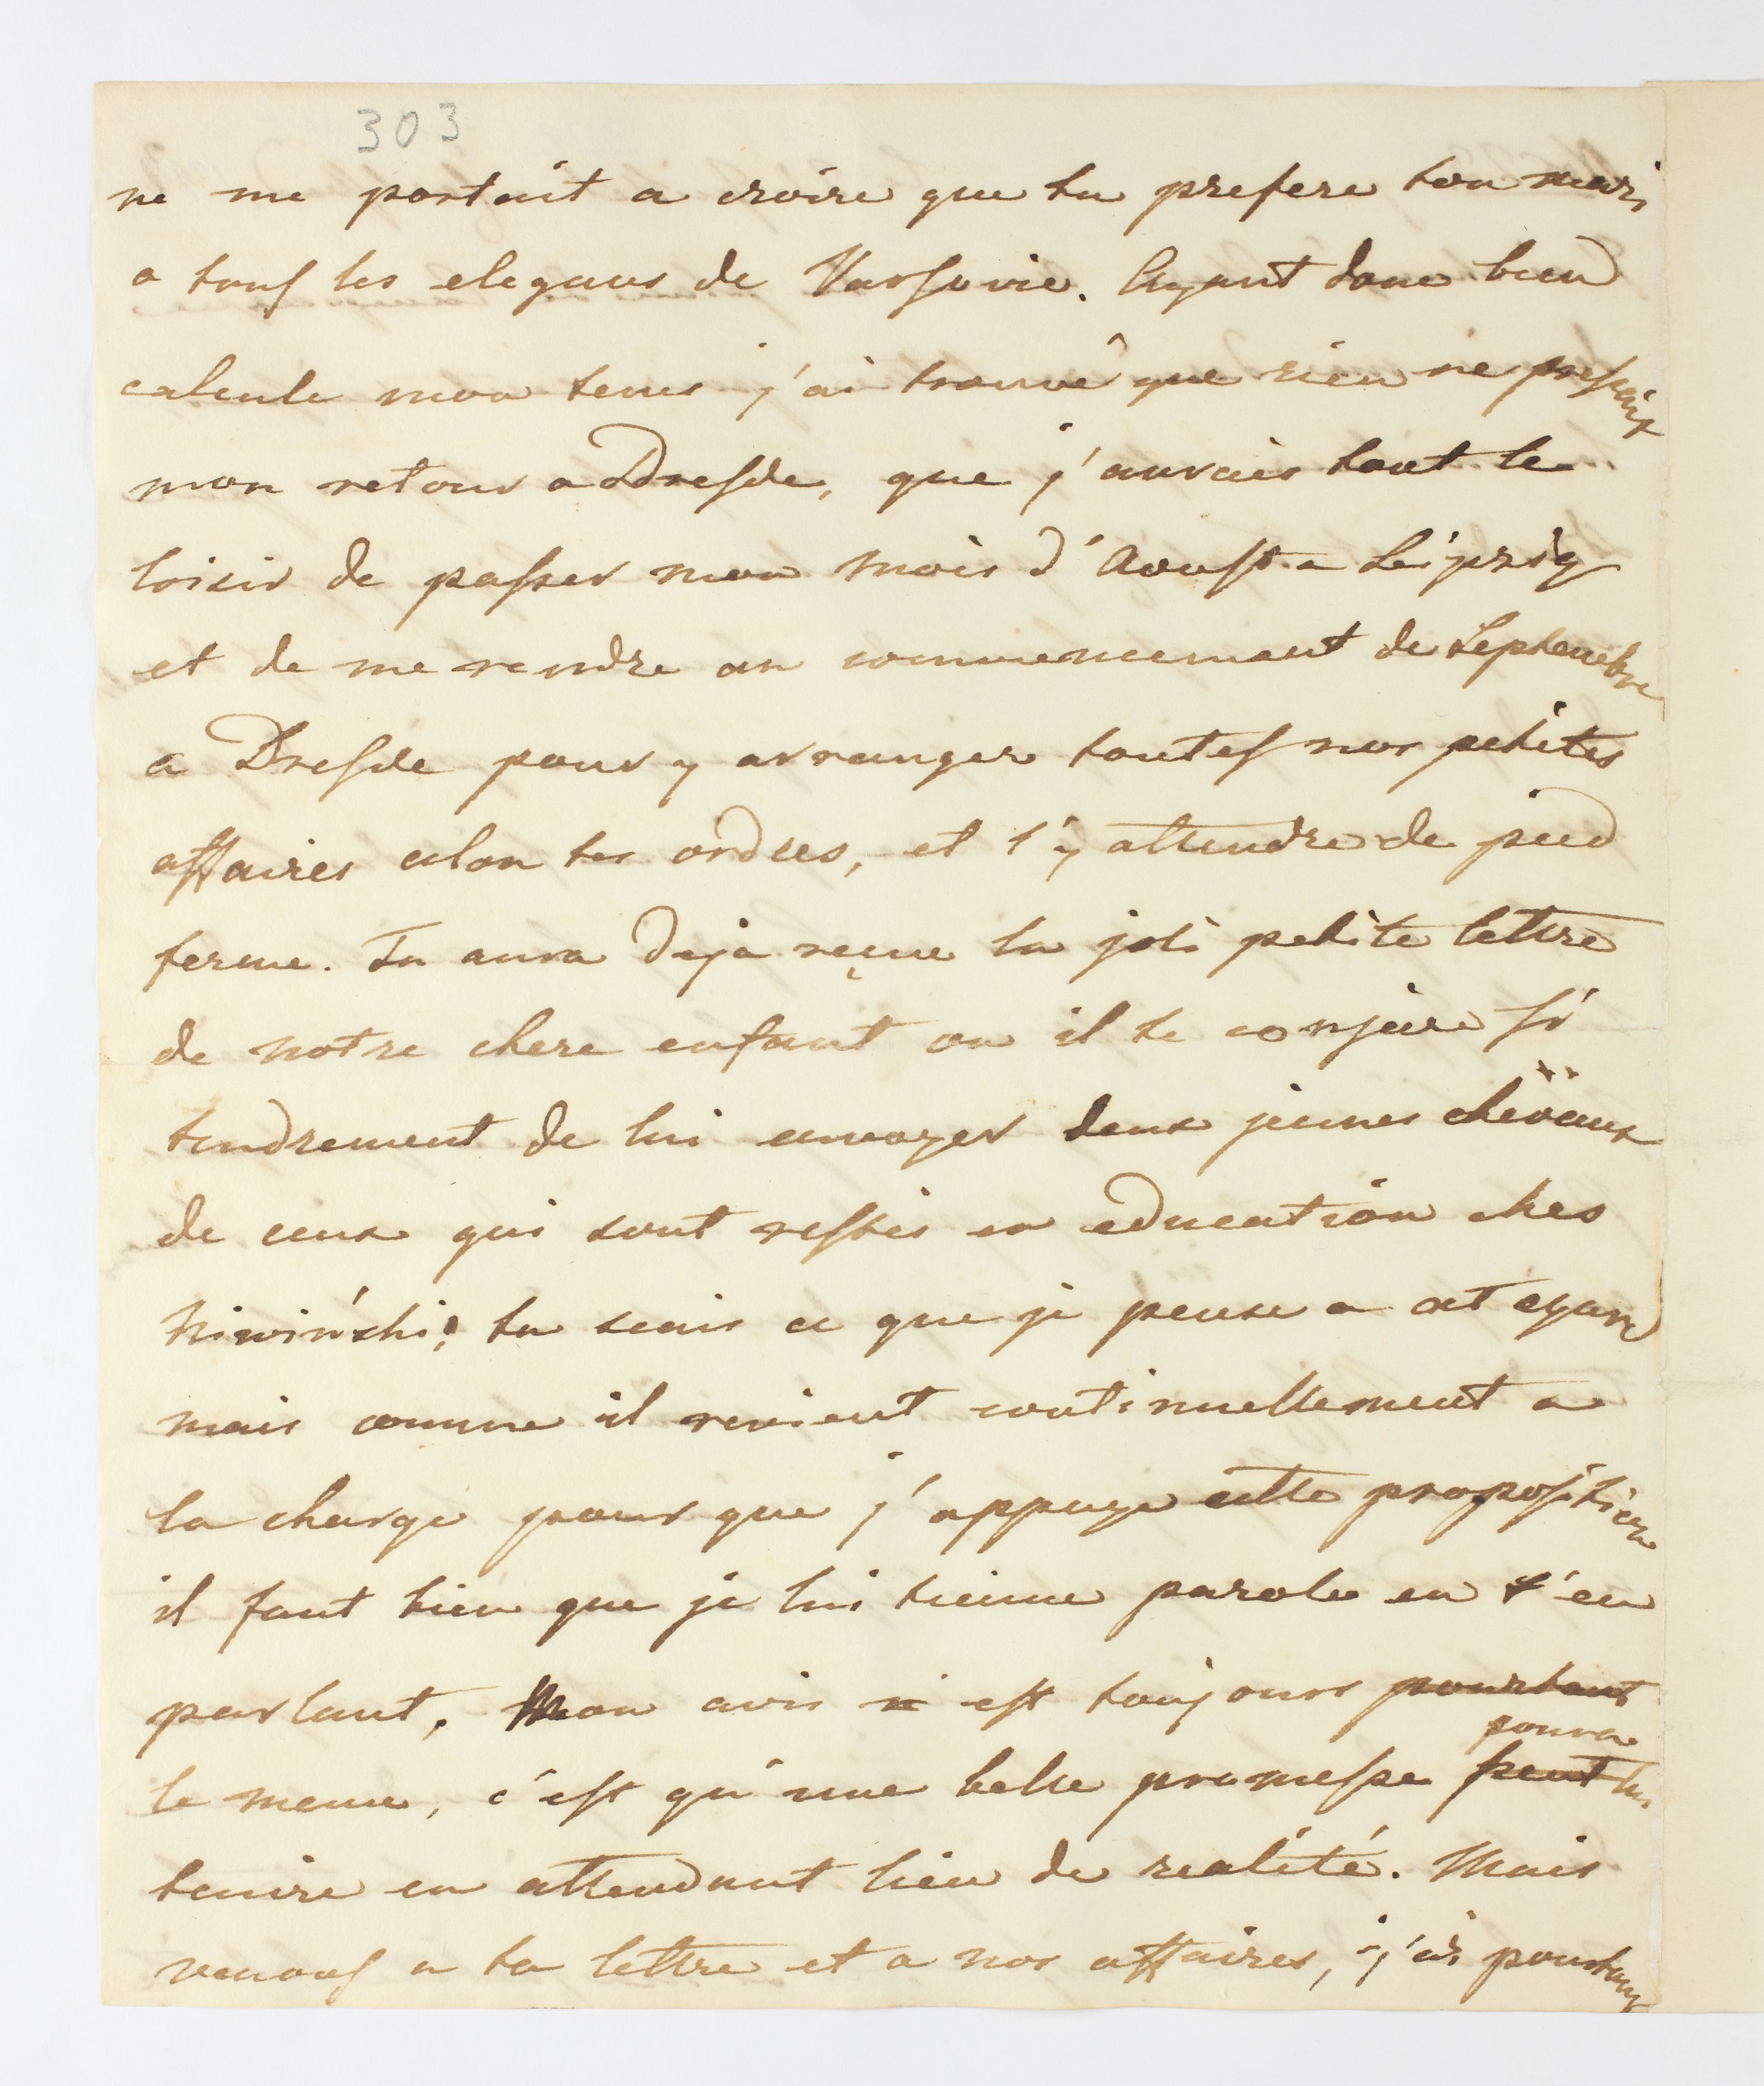 303
ne me portait a croire que tu prefere ton mari
a tous les elegans de Varsovie. Ayant donc bien
calcule mon tems j'ai trouvé que rien ne pressait
mon retour a Dresde, que j'aurais tout le
loisir de passer mon mois d'Aoust a Leipzig
et de me rendre au commencement de Septembre
a Dresde pour y arranger toutes nos petites
affaires celon tes ordres, et t'y attendre de pied
ferme. Tu aura deja reçue la joli petite lettre
de notre chere enfant ou il te conjure si
tendrement de lui envoyer deux jeunes chevaux
de ceux qui sont restés en education ches
Niwiński; tu scais ce que je pense a cet egard
mais comme il revient continuellement a
la charge pour que j'appuye cette proposition
il faut bien que je lui tienne parole en t'en
parlant. Mon avis n est toujours pourtant
pourra
le meme, c'est qu'une belle promesse peut lui
tenire en attendant lieu de realité. Mais
venons a ta lettre et a nos affaires, j'ai pourtant